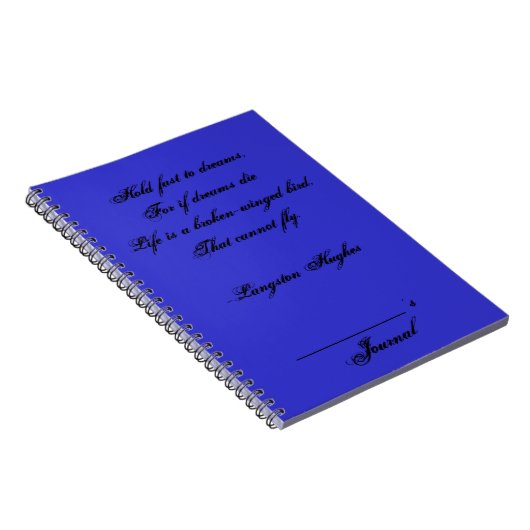 Hold fast to dreams,
For if dreams die
Life is a broken-winged bird,
That cannot fly.
-Langston Hughes
______________'s
Journal